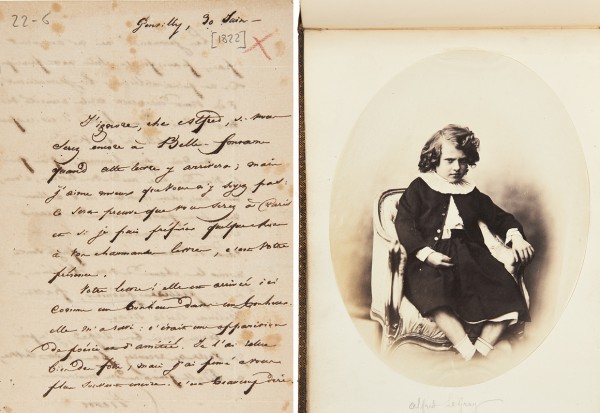 22-6
Gentilly, 30 Juin
[1822]
J'ignore, cher Alfred, si vous
serez encore à Belle-fontaine
quand cette lettre y arrivera ; mais
j'aime mieux que vous n'y soyez pas.
Ce sera preuve que vous serez à Paris
et si je puis préférer quelque chose
à votre charmante lettre, c'est votre
présence.
Votre lettre ! elle est arrivée ici
comme un bonheur dans un bonheur.
elle m'a : c'était une apparition
de poésie et d'amitié. Je l'ai relue
bien de fois, mais j'ai pensé à vous
plus souvent encore. beaucoup
Alfred